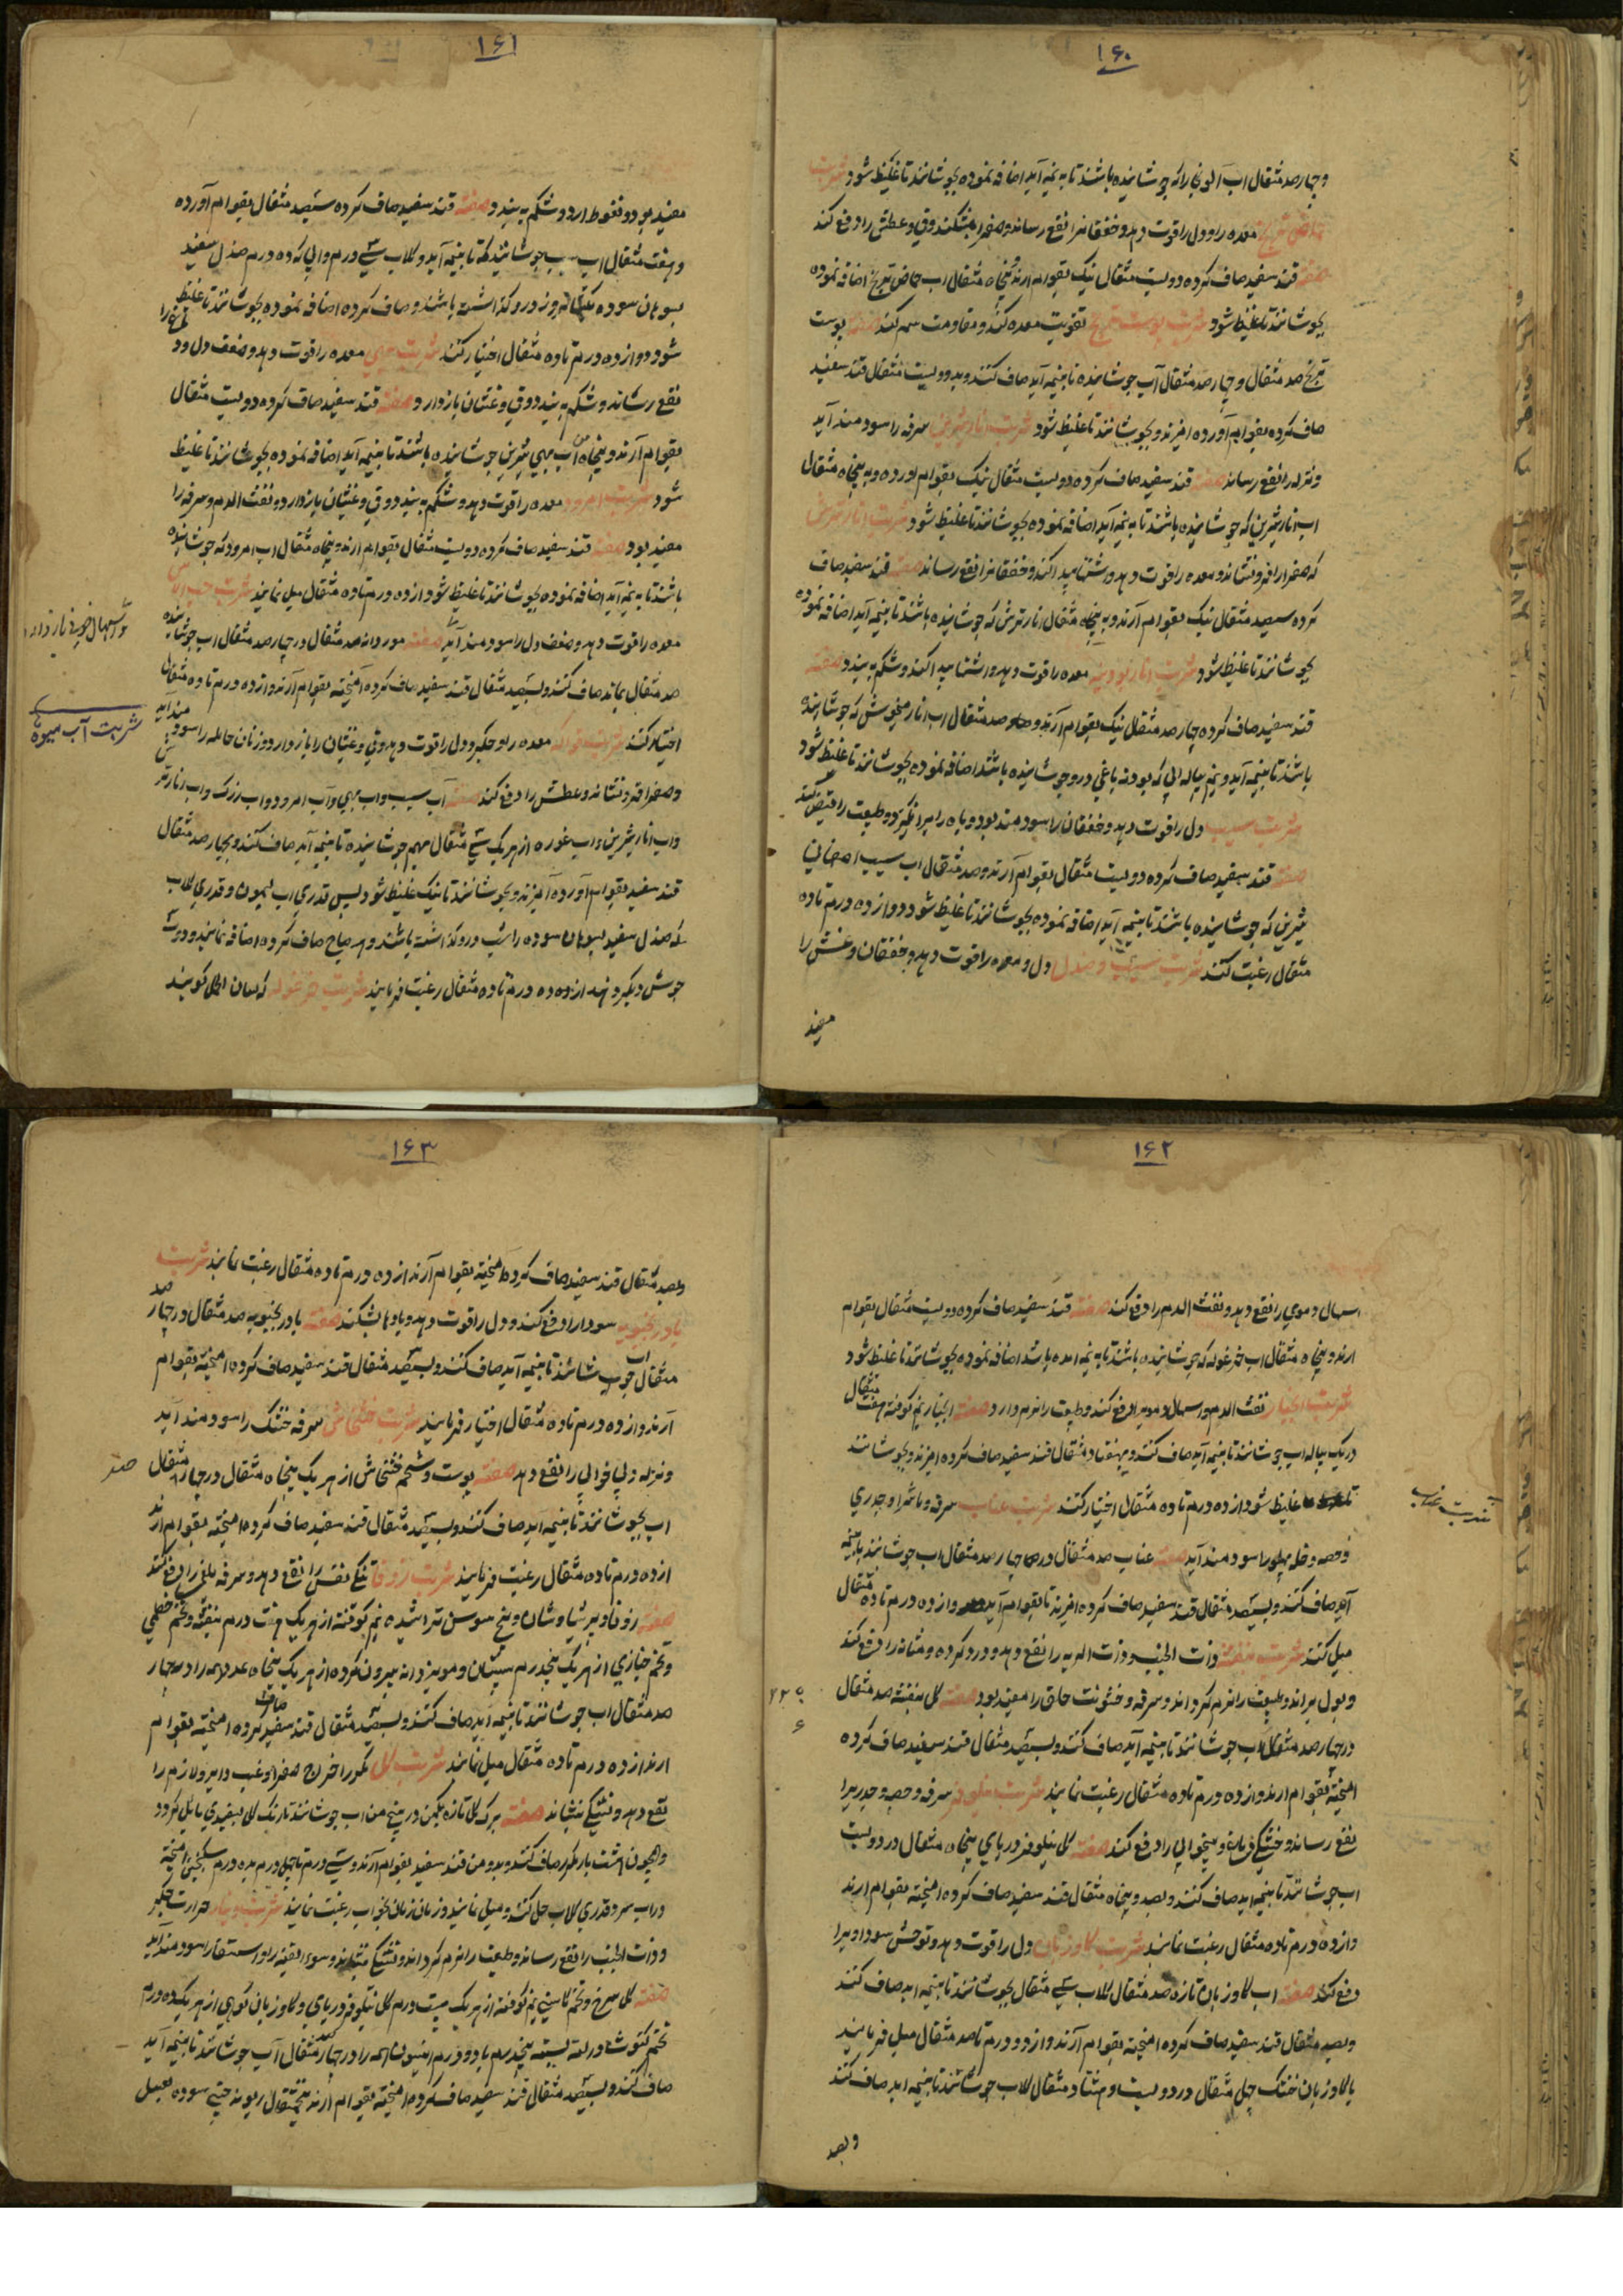 ۱۶۰
و چهارصد مثقال اب الو بخارا که جوشانیده باشند تا به نیمه آید اضافه نموده بجوشانند تا غلیظ شود شربت
معده را و دل را قوت دهد و خفقانرا نفع رساند و صفرا بشکند و قی و عطش را دفع کند
صفته قند سفید صاف کرده دویست مثقال نیک بقوام ارند و پنجاه مثقال اب حماض ترنج اضافه نموده
بجوشانند تا غلیظ شود شربت پوست ترنج تقویت معده کند و مقاومت سم کند صفته پوست
ترنج صد مثقال و چهارصد مثقال آب جوشانیده تا بنیمه آید صاف کنند و بدویست مثقال قند سفید
صاف کرده بقوام آورده امیزند و بجوشانند تا غلیظ شود شربت انار شیرین سرفه را سودمند آید
و نزله را نفع رساند صفته قند سفید صاف کرده دویست مثقال نیک بقوام اورده و به پنجاه مثقال
اب انار شیرین که جوشانیده باشند تا به نیمه آید اضافه نموده بجوشانند تا غلیظ شود شربت انار ترش
که صفرا را فرو نشاند و معده را قوت دهد و اشتها پیدا کند و خفقانرا نفع رساند صفته قند سفید صاف
کرده سیصد مثقال نیک بقوام آرند و به پنجاه مثقال انار ترش که جوشانیده باشند تا بنیمه آید اضافه نموده
بجوشانند تا غلیظ شود شربت انار پودینه معده را قوت دهد و اشتها پیدا کند و شکم به بندد صفته
قند سفید صاف کرده چهارصد مثقال نیک بقوام آرند و صد مثقال اب انار میخوش که جوشانیده
باشند تا بنیمه آید و نیم پیاله ابی که پودنه باغی درو جوشانیده باشد اضافه نموده بجوشانند تا غلیظ شود
شربت سیب دل را قوت دهد و خفقان را سودمند بود و باه را برانگیزد و طبیعت را قبض کند
صفته قند سفید صاف کرده دویست مثقال بقوام آرند و صد مثقال اب سیب اصفهانی
شیرین که جوشانیده باشند تا بنیمه آید اضافه نموده بجوشانند تا غلیظ شود و از ده درم تا ده
مثقال رغبت کنند شربت سیب و صندل دل و معده را قوت دهد و خفقان و غش را
مفید
۱۶۱
مفید بود و قعوط ارد و شکم به بندد صفته قند سفید صاف کرده سیصد مثقال بقوام آورده
و هفت مثقال اب سیب جوشانیده که تا بنیمه آید و گلاب سی درم و ابی که ده درم صندل سفید
بسوهان سوده یکشبانه روز درو گذاشته باشند و صاف کرده اضافه نموده بجوشانند تا غلیظ
شود و از ده درم تا ده مثقال اختیار کنند شربت بهی معده را قوت دهد و ضعف دل و درد
نفع رساند و شکم به بندد و قی و غثیان بازدارد صفته قند سفید صاف کرده دویست مثقال
بقوام آرند و پنجاه اب بهی شیرین جوشانیده باشند تا بنیمه آید اضافه نموده بجوشانند تا غلیظ
شود شربت امرود معده را قوت دهد و شکم به بندد و قی و غثیان بازدارد و نفث الدم و سرفه را
مفید بود صفته قند سفید صاف کرده دویست مثقال بقوام ارند و پنجاه مثقال اب امرود که جوشانیده
باشند تا به نیمه آید اضافه نموده بجوشانند تا غلیظ شود و از ده درم تا ده مثقال میل نمایند شربت حب الاس
معده را قوت دهد و ضعف دل را سودمند آید صفته مورد دانه صد مثقال در چهارصد مثقال اب جوشانیده
صد مثقال بماند صاف کنند و بسیصد مثقال قند سفید صاف کرده آمیخته بقوام آرند و از ده درم تا ده مثقال
اختیار کنند شربت فواکه معده را و جگر و دل را قوت دهد و قی و غثیان را بازدارد و زنان حامله را سودمند آید
و صفرا فرو نشاند و عطش را دفع کند صفته آب سیب و اب بهی و آب امرود و اب زرک و اب انار ترش
و اب انار شیرین و اب غوره از هر یک سی مثقال مهم جوشانیده تا بنیمه آید صاف کنند و بچهارصد مثقال
قند سفید بقوام آورده آمیزند و بجوشانند تا نیک غلیظ شود پس قدری اب لیمون و قدری گلاب
که صندل سفید بسوهان سوده را شب درو گذاشته باشند و بصباح صاف کرده اضافه نمایند و دو سه
جوش دیگر دهند از ده درم تا ده مثقال رغبت فرمایند شربت خرغوله که لسان الحمل گویند
و اسهال خونی باز دارد
شربت آب میوه
۱۶۲
اسهال دموی را نفع دهد و نفث الدم را دفع کند صفته قند سفید صاف کرده دویست مثقال بقوام
ارند و پنجاه مثقال اب خرغوله که جوشانیده باشند تا به نیمه امده باشد اضافه نموده بجوشانند تا غلیظ شود
شربت انجبار نفث الدم و اسهال دمویرا دفع کند و طبیعت را نرم دارد صفته انجبار نیم کوفته هفت مثقال
در یک پیاله اب جوشانند تا بنیمه آید صاف کنند و بهفتاد مثقال قند سفید صاف کرده امیزند و بجوشانند
تا غلیظ شود از ده درم تا ده مثقال اختیار کنند شربت عناب سرفه و ماشرا و جدری
و حصبه و خلط پهلو را سودمند آید صفته عناب صد مثقال در چهارصد مثقال اب جوشانند تا بنیمه
آید صاف کنند و بسیصد مثقال قند سفید صاف کرده امیزند تا بقوام آید و از ده درم تا ده مثقال
میل کنند شربت بنفشه ذات الجنب و ذات الریه را نفع دهد و درد گرده و مثانه را دفع کند
و بول براند و طبیعت را نرم گرداند و سرفه و خشونت حلق را مفید بود صفته گل بنفشه صد مثقال
در چهارصد مثقال اب جوشانند تا بنیمه آید صاف کنند و بسیصد مثقال قند سفید صاف کرده
امیخته بقوام ارند و از ده درم تا ده مثقال رغبت نمایند شربت نیلوفر سرفه و حصبه و جدریرا
نفع رساند و خشکی دماغ و بیخوابی را دفع کند صفته گل نیلوفر دریای پنجاه مثقال در دویست
اب جوشانند تا بنیمه اید صاف کنند و بصد و پنجاه مثقال قند سفید صاف کرده امیخته بقوام ارند
و از ده درم تا ده مثقال رغبت نمایند شربت گاوزبان دل را قوت دهد و توحش سوداویرا
دفع کند صفته اب گاوزبان تازه صد مثقال گلاب سی مثقال بجوشانند تا بنیمه اید صاف کنند
و بصد مثقال قند سفید صاف کرده امیخته بقوام آرند و از دو درم تا صد مثقال میل فرمایند
یا گاوزبان خشک چهل مثقال در دویست و هفتاد مثقال گلاب جوشانند تا بنیمه اید صاف کنند
و بصد
شربت عناب
۱۶۳
و بصد مثقال قند سفید صاف کرده امیخته بقوام آرند از ده درم تا ده مثقال رغبت نمایند شربت
بادرنجبویه سودا را دفع کند و دل را قوت دهد و بادها بشکند صفته بادرنجبویه صد مثقال در چهار صد
مثقال اب جوشانند تا بنیمه آید صاف کنند و بسیصد مثقال قند سفید صاف کرده امیخته بقوام
آرند و از ده درم تا ده مثقال اختیار فرمایند شربت خشخاش سرفه خشک را سودمند آید
و نزله و بی خوابی را نفع دهد صفته پوست و تخم خشخاش از هر یک پنجاه مثقال در چهار مثقال
اب بجوشانند تا بنیمه آید صاف کنند و بسیصد مثقال قند سفید صاف کرده امیخته بقوام ارند
از ده درم تا ده مثقال رغبت فرمایند شربت زوفا تنگی نفس را نفع دهد و سرفه بلغمی را دفع کند
صفته زوفا و پرسیاوشان و بیخ سوسن تراشیده نیم کوفته از هر یک هفت درم بنفشه و تخم خطمی
و تخم خبازی از هر یک پنجدرم سپستان و مویز دانه بیرون کرده از هر یک پنجاه عدد همه را در چهار
صد مثقال اب جوشانند تا بنیمه اید صاف کنند و بسیصد مثقال قند سفید صاف کرده امیخته بقوام
ارند از ده درم تا ده مثقال میل نمایند شربت گل مکرر اخراج صفرا و غب دایر و لازم را
نفع دهد و تشنگی بنشاند صفته برک گل تازه یکمن در پنج من اب جوشانند تا رنک گل بسفیدی مایل گردد
و همچون هشت بار مکرر صاف کنند و بدو من قند سفید بقوام آرند و سی درم تا چهل درم بده درم سکنجبین امیخته
در اب سرد و قدری گلاب حل کنند و میل نمایند و زمان زمان بخواب رغبت نمایند شربت دینار حرارت جگر
و ذات الجنب را نفع رساند و طبیعت را نرم گرداند و تشنگی بنشاند و سوء القنیه را و استسقا را سودمند آید
صفته گل سرخ و تخم کاسنی نیم کوفته از هر یک بیست درم گل نیلوفر دریای و گاوزبان کوهی از هر یک ده درم
تخم کشوث در لته بسته پنجدرم بادو درم انیسون همه را در چهار صد مثقال آب جوشانند تا بنیمه آید
صاف کنند و بسیصد مثقال قند سفید صاف کرده امیخته بقوام ارند پنج مثقال ریوند چینی سوده بعمل